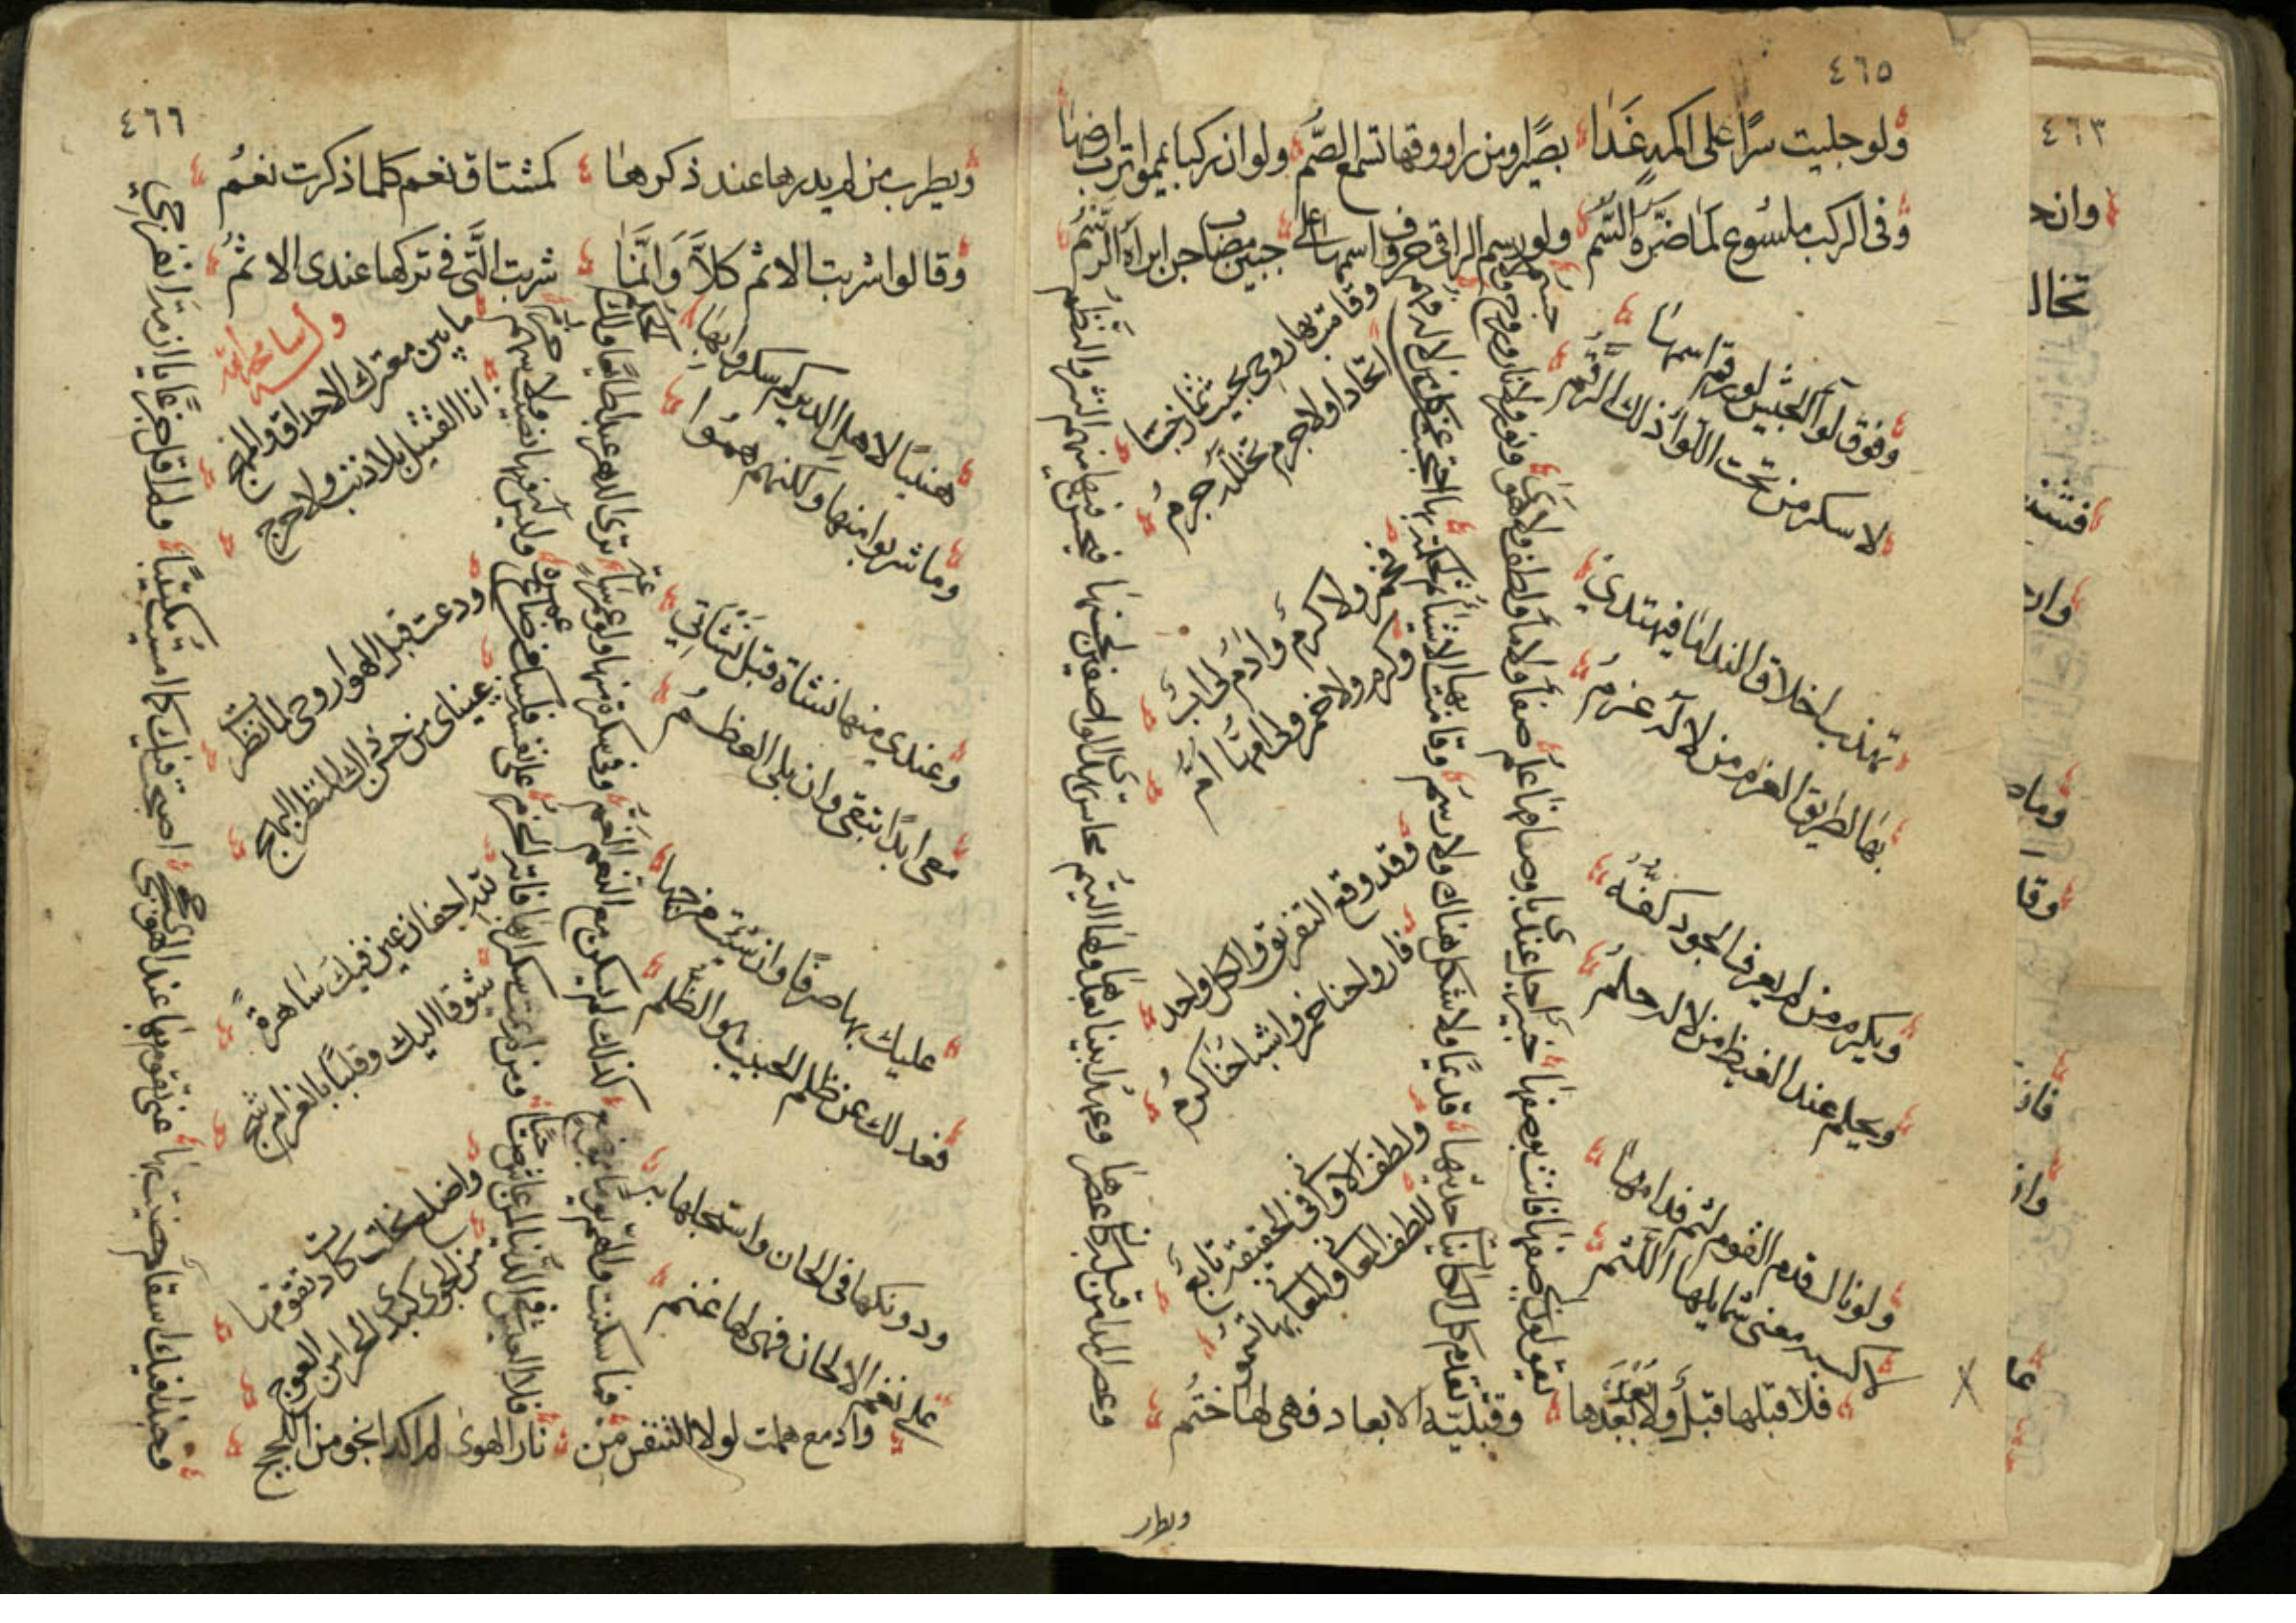 ٤٦٥
ولو جليت سرًا على اكمه غَدَا بصيرًا ومن راووقها تسمع الصُّم ولو ان ركبا يمموا ترب ارضها
وفى الركب ملسُوع لمَا ضرَّهُ السَّم ولو رسم الراقى حروف اسمها على جبين مصاب جن ابراَهُ الرَّسْمُ
وفوق لوآ الجيش لو رقم اسمهَا
لاسكر من تحت اللّوا ذلك الرَّقْم
تهذب اخلاق الندامَا فيهتدي
بهَا لطريق العزم من لا لَه عَزْمُ
ويكرم من لم يعرف الجود كفّهُ
ويحلم عند الغيظ من لا له حلمُ
ولو نال فدم القوم لثم فدامهَا
لاكسبه معنى شمايلها اللَّثم
يقولون لى صفها فانت بوصفها خبير اجل عندى باوصافهَا علم
صفاءٌ ولا مآءٌ ولطف ولا هوَى ونور ولا نار وروح ولا جسم
تقدم كل الكائنات حديثها قديمًا ولا شكل هناك ولا رسم
وقامت بها الاشيآء ثم لحكمة بها احتجبت عن كل من لا له فهم
وقامت بها روحى بحيث تمازجتا
اتحادا ولا جرم تخلله جرمُ
فخمر ولا كرمٌ وآدم لى ابٌ
وكرم ولا خمر ولى امهَا امُّ
وقد وقع التفريق والكل واحد
فارواحنا خمر واشباحنَا كرمُ
ولطف الاوانى فى الحقيقة تابعٌ
للطف المعانى والمعانى بها تنمو
فلا قبلها قبلٌ ولا بَعْدَ بَعْدَهَا وقبلية الابعاد فهى لهَا ختمُ
وعصر المدا من قبله كان عصرهَا وعهد ابينا بعدها ولهَا اليتم
محاسن تهدى الواصفين لحسنهَا فيحسن فيها منهم النثر والنظمُ
ويطر
٤٦٦
ويطرب من لم يدرها عند ذكرهَا كمشتاق نعم كلما ذكرت نعْمُ
وقالوا شربت الاثم كلاَّ وَانَّمَا شربت الَّتى فى تركها عندى الاثمُ
هنيئًا لاهل الدير كم سكروا بهَا
وما شربوا منها ولكنهم همُوا
وعندي منها نشاة قبل نَشْأتِي
معى ابدًا تبقى وان بلى العظمُ
عليك بها صرفًا وان شئت مزجهَا
فعدلك عن ظلم الحبيب هو الظلم
ودونكها فى الحان واستجلها به
على نغم الالحان فهى لها غنم
فما سكنت والهم يومًا بموضع كذلك لم يسكن مع النغم الغم
وفى سكرة منها ولو عمر ساعة ترى الدهر عبدا طائعًا ولك الحكم
فلا عيش فى الدُّنيا لمن عاش صَاحيًا ومن لم يمت سكرا بها فاته الحزم
على نفسه فليبك من ضاع عمره وليس له فيها نصيب ولا سهم
وله أيضا رحمه الله
ما بين معترك الاحداق والمهج
انا القتيل بلا ذنب ولا حرج
ودعت قبل الهوا روحى لما نظرت
عيناى من حسن ذاك المنظر البهج
لله اجفان عين فيك سَاهرةٌ
شوقا اليك وقلبًا بالغرام شج
واضلع نحلت كادت تقوّمها
من الجوى كبدى الحرا من العوج
وادمع هملت لولا التنفس من نار الهوى لم اكد انجو من اللجج
وحبذا فيك اسقام خفيت بهَا عنى تقوم بها عند الهوى حججى
اصبحت فيك كما امسيت مكتئبًا ولم اقل جزعًا يا ازمة انفرجي
٤٦٣